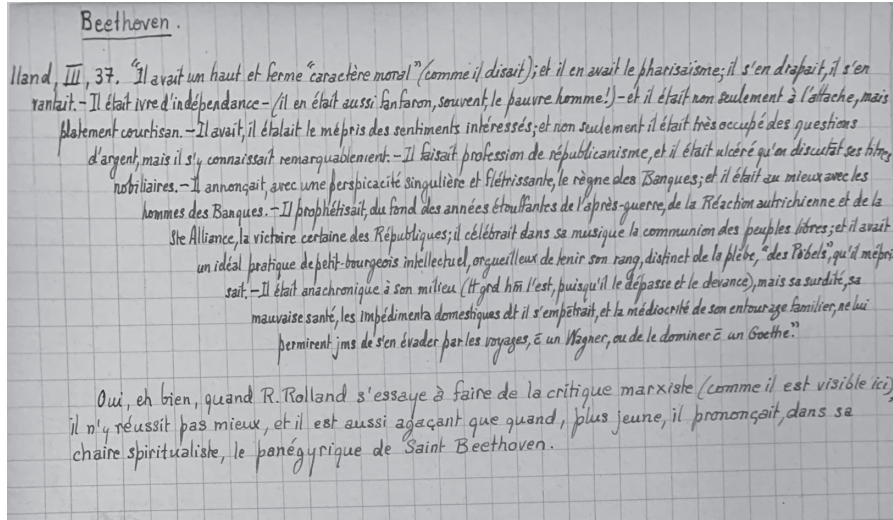 Beethoven.
lland, III, 37. "Il avait un haut et ferme "caractère moral" (comme il disait); et il en avait le pharisaïsme; il s'en drapait, il s'en
vantait. - Il était ivre d'indépendance - (il en était aussi fanfaron, souvent, le pauvre homme!) - et il était non seulement à l'attache, mais
platement courtisan. - Il avait, il étalait le mépris des sentiments intéressés; et non seulement il était très occupé des questions
d'argent, mais il s'y connaissait remarquablement. - Il faisait profession de républicanisme, et il était ulcéré qu'on discutât ses titres
nobiliaires. - Il annonçait, avec une perspicacité singulière et flétrissante, le règne des Banques; et il était au mieux avec les
hommes des Banques. - Il prophétisait, du fond des années étouffantes de l'après-guerre, de la Réaction autrichienne et de la
Ste Alliance, la victoire certaine des Républiques; il célébrait dans sa musique la communion des peuples libres; et il avait
un idéal pratique de petit-bourgeois intellectuel, orgueilleux de tenir son rang, distinct de la plèbe, "des Pöbels", qu'il mépri
sait. - Il était anachronique à son milieu (tt grd hm l'est, puisqu'il le dépasse et le devance), mais sa surdité, sa
mauvaise santé, les impédimenta domestiques dt il s'empêtrait, et la médiocrité de son entourage familier, ne lui
permirent jms de s'en évader par les voyages, c̄ un Wagner, ou de le dominer c̄ un Goethe."
Oui, eh bien, quand R. Rolland s'essaye à faire de la critique marxiste (comme il est visible ici),
il n'y réussit pas mieux, et il est aussi agaçant que quand, plus jeune, il prononçait, dans sa
chaire spiritualiste, le panégyrique de Saint Beethoven.